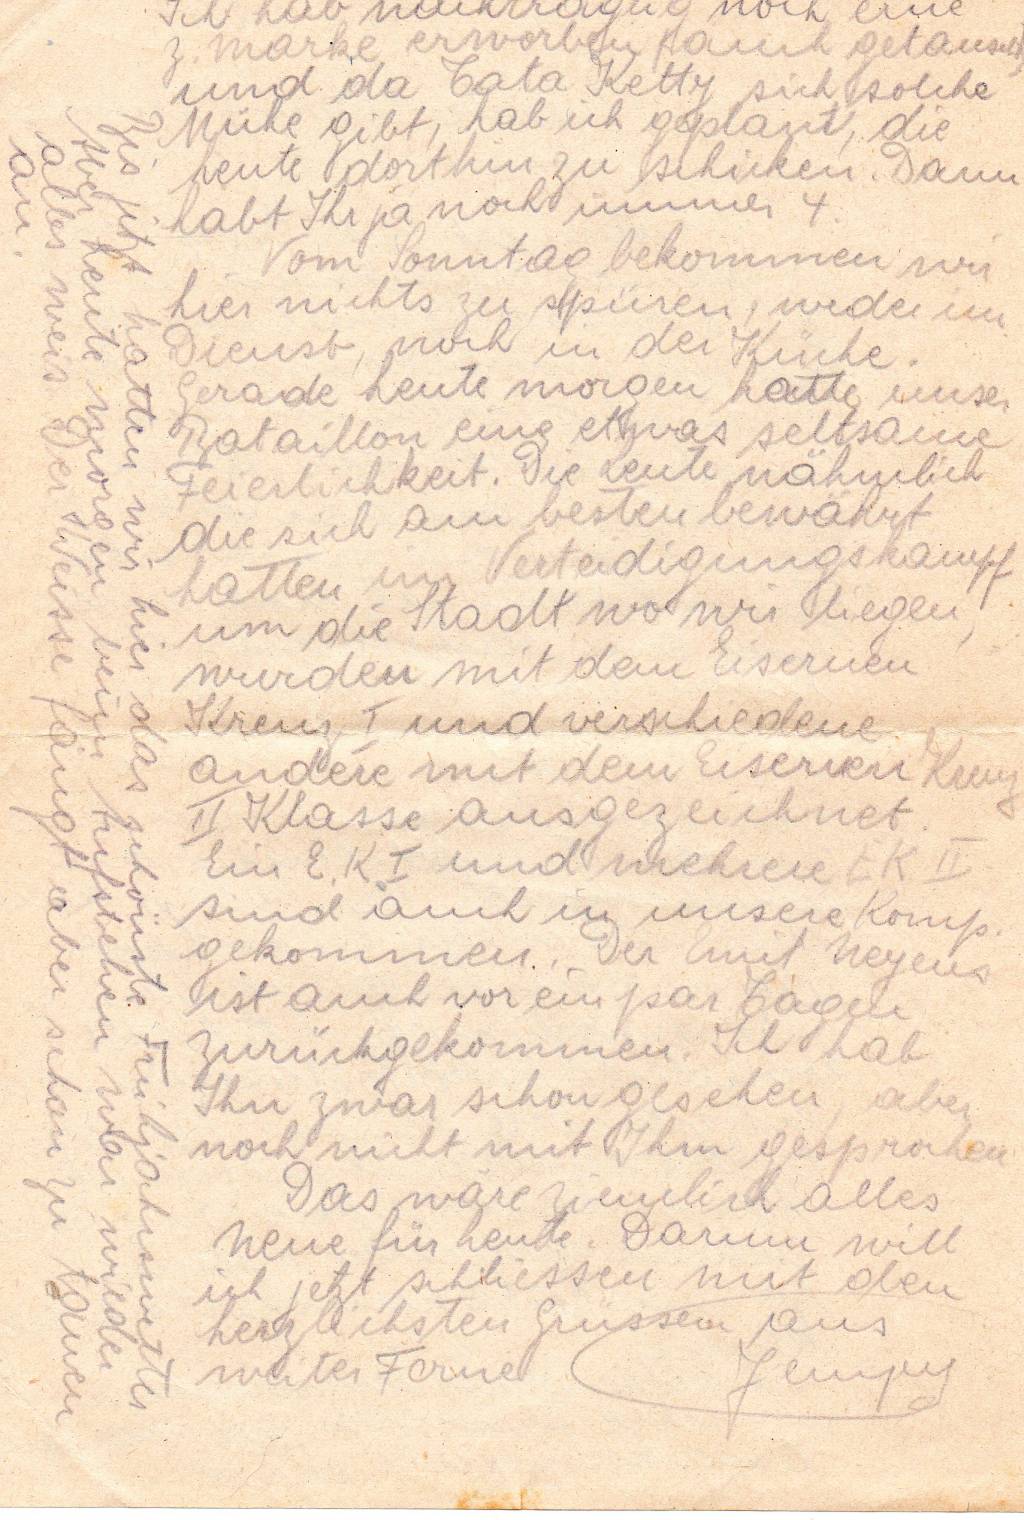 Ich hab nachträglig noch eine
z. marke erworben auch getauscht
und da Tata Ketty sich solche
Mühe gibt, hab ich geplant, die
heute dorthin zu schicken. Dann
habt Ihr ja noch immer 4.
Vom Sonntag bekommen wir
hier nichts zu spüren, weder im
Dienst, noch in der Küche.
Gerade heute morgen hatte unser
Bataillon eine etwas seltsame
Feierlichkeit. Die Leute nähmlich
die sich am besten bewährt
hatten im Verteidigungskampf
um die Stadt wo wir liegen,
wurden mit dem Eisernen
Kreuz I und verschiedene
andere mit dem Eisernen Kreuz
II Klasse ausgezeichnet.
Ein E.K I und mehrere EK II
sind auch in unsere Komp.
gekommen. Der Emil Neyens
ist auch vor ein par Tagen
zurückgekommen. Ich hab
Ihn zwar schon gesehen, aber
noch nicht mit Ihm gesprochen
Das wäre ziemlich alles
Neue für heute. Darum will
ich jetzt schliessen mit den
herzlichsten Grüssen aus
weiter Ferne
Jempy
Bis jetzt hatten wir hier das schönste Frühjahrswetter
Aber heute morgen beim Aufstehen war wieder
alles weis Der Weisse fängt aber schon zu tauen
an.